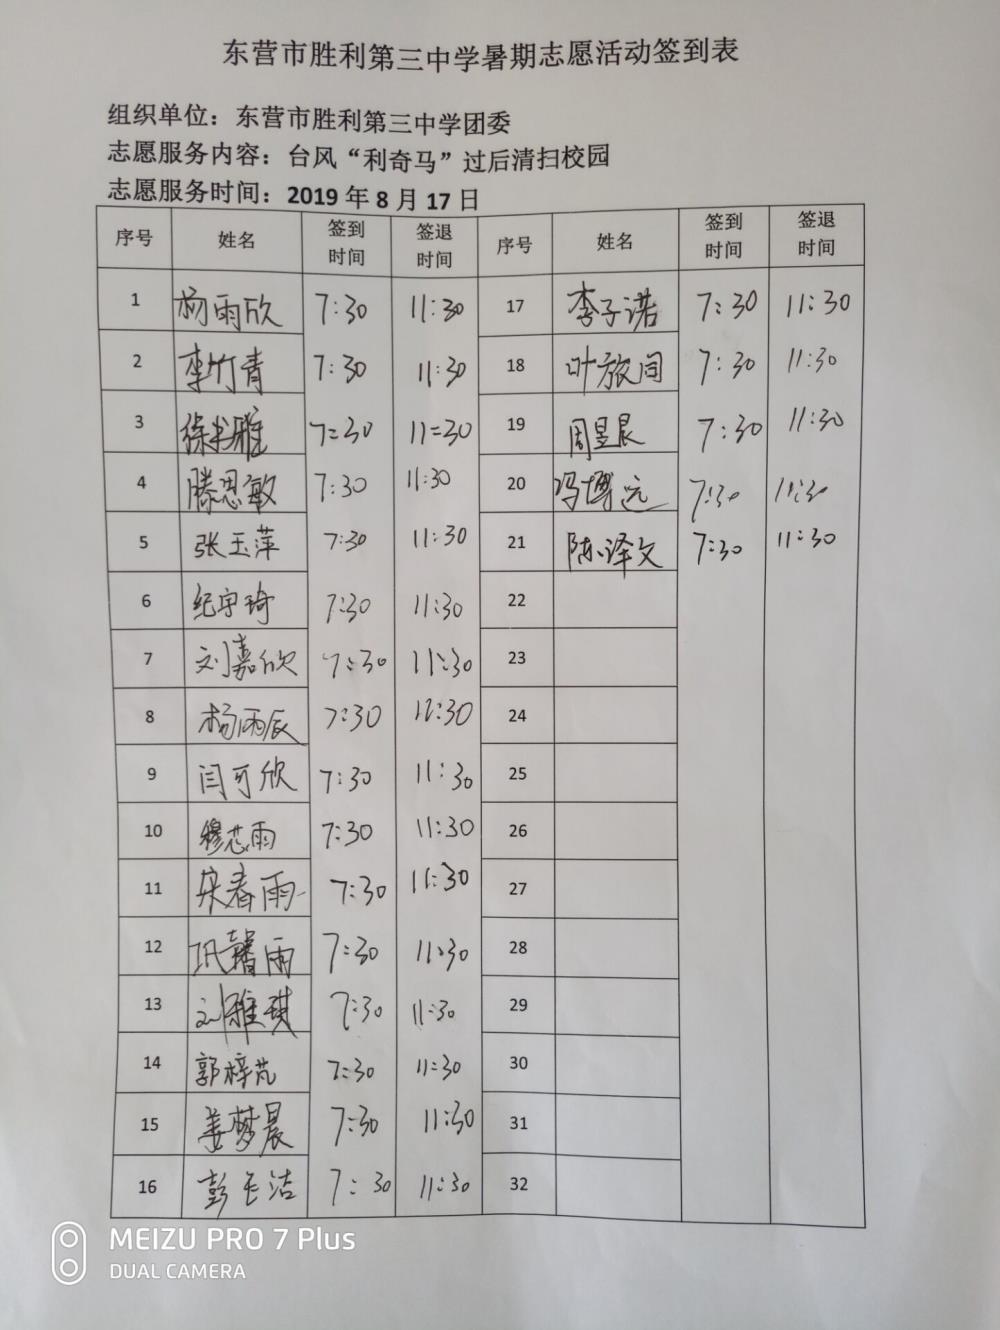 东营市胜利第三中学暑期志愿活动签到表
组织单位：东营市胜利第三中学团委
志愿服务内容：台风“利奇马”过后清扫校园
志愿服务时间：2019 年 8 月 17 日
序号 姓名 签到时间 签退时间 序号 姓名 签到时间 签退时间
1 杨雨欣 7:30 11:30 17 李子诺 7:30 11:30
2 李竹青 7:30 11:30 18 叶放同 7:30 11:30
3 徐雅 7:30 11:30 19 周昱晨 7:30 11:30
4 滕思敏 7:30 11:30 20 冯博远 7:30 11:30
5 张玉萍 7:30 11:30 21 陈泽文 7:30 11:30
6 纪宇琦 7:30 11:30 22
7 刘嘉欣 7:30 11:30 23
8 杨雨辰 7:30 11:30 24
9 闫可欣 7:30 11:30 25
10 穆芯雨 7:30 11:30 26
11 宋春雨 7:30 11:30 27
12 巩馨雨 7:30 11:30 28
13 刘雅琪 7:30 11:30 29
14 郭梓芃 7:30 11:30 30
15 姜梦晨 7:30 11:30 31
16 彭玉洁 7:30 11:30 32
MEIZU PRO 7 Plus
DUAL CAMERA